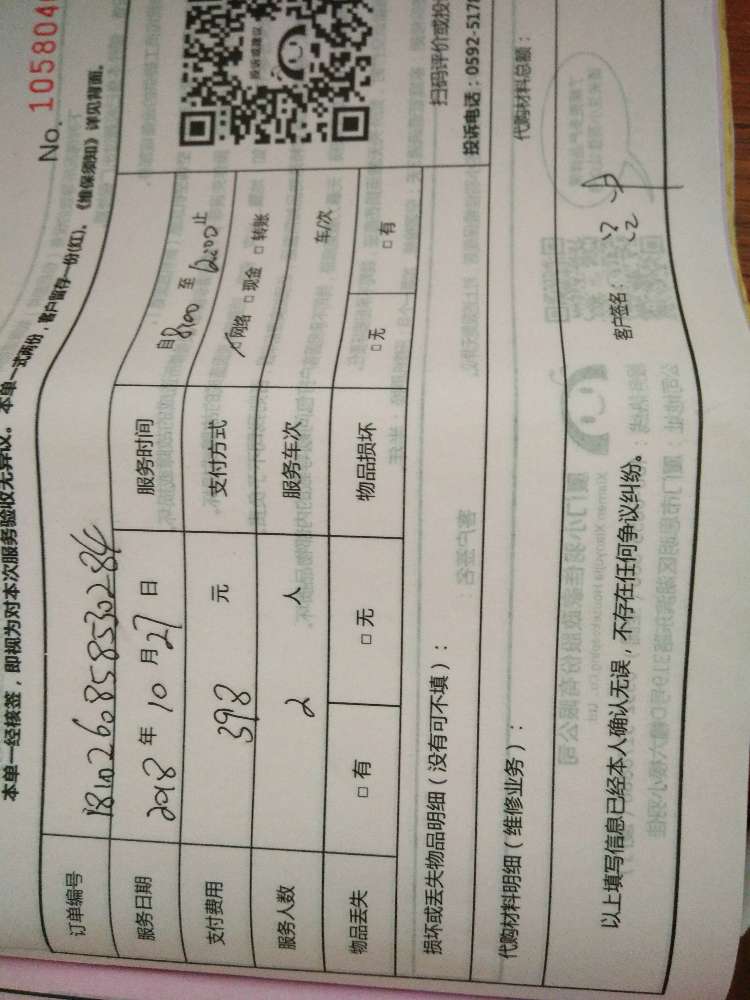 No. 1058040
本单一经核签，即视为对本次服务验收无异议。本单一式两份，客户留存一份(红)。《维保须知》详见背面。
订单编号 181026085853028
服务日期 2018 年 10 月 27 日 服务时间 自 8:00 至 12:00 止
支付费用 398 元 支付方式 ☑网络 □现金 □转账
服务人数 2 人 服务车次 车/次
物品丢失 □有 □无 物品损坏 □无 □有
投诉或建议
扫码评价或投
投诉电话：0592-517
损坏或丢失物品明细（没有可不填）：
代购材料明细（维修业务）： 代购材料总额：
以上填写信息已经本人确认无误，不存在任何争议纠纷。 客户签名：